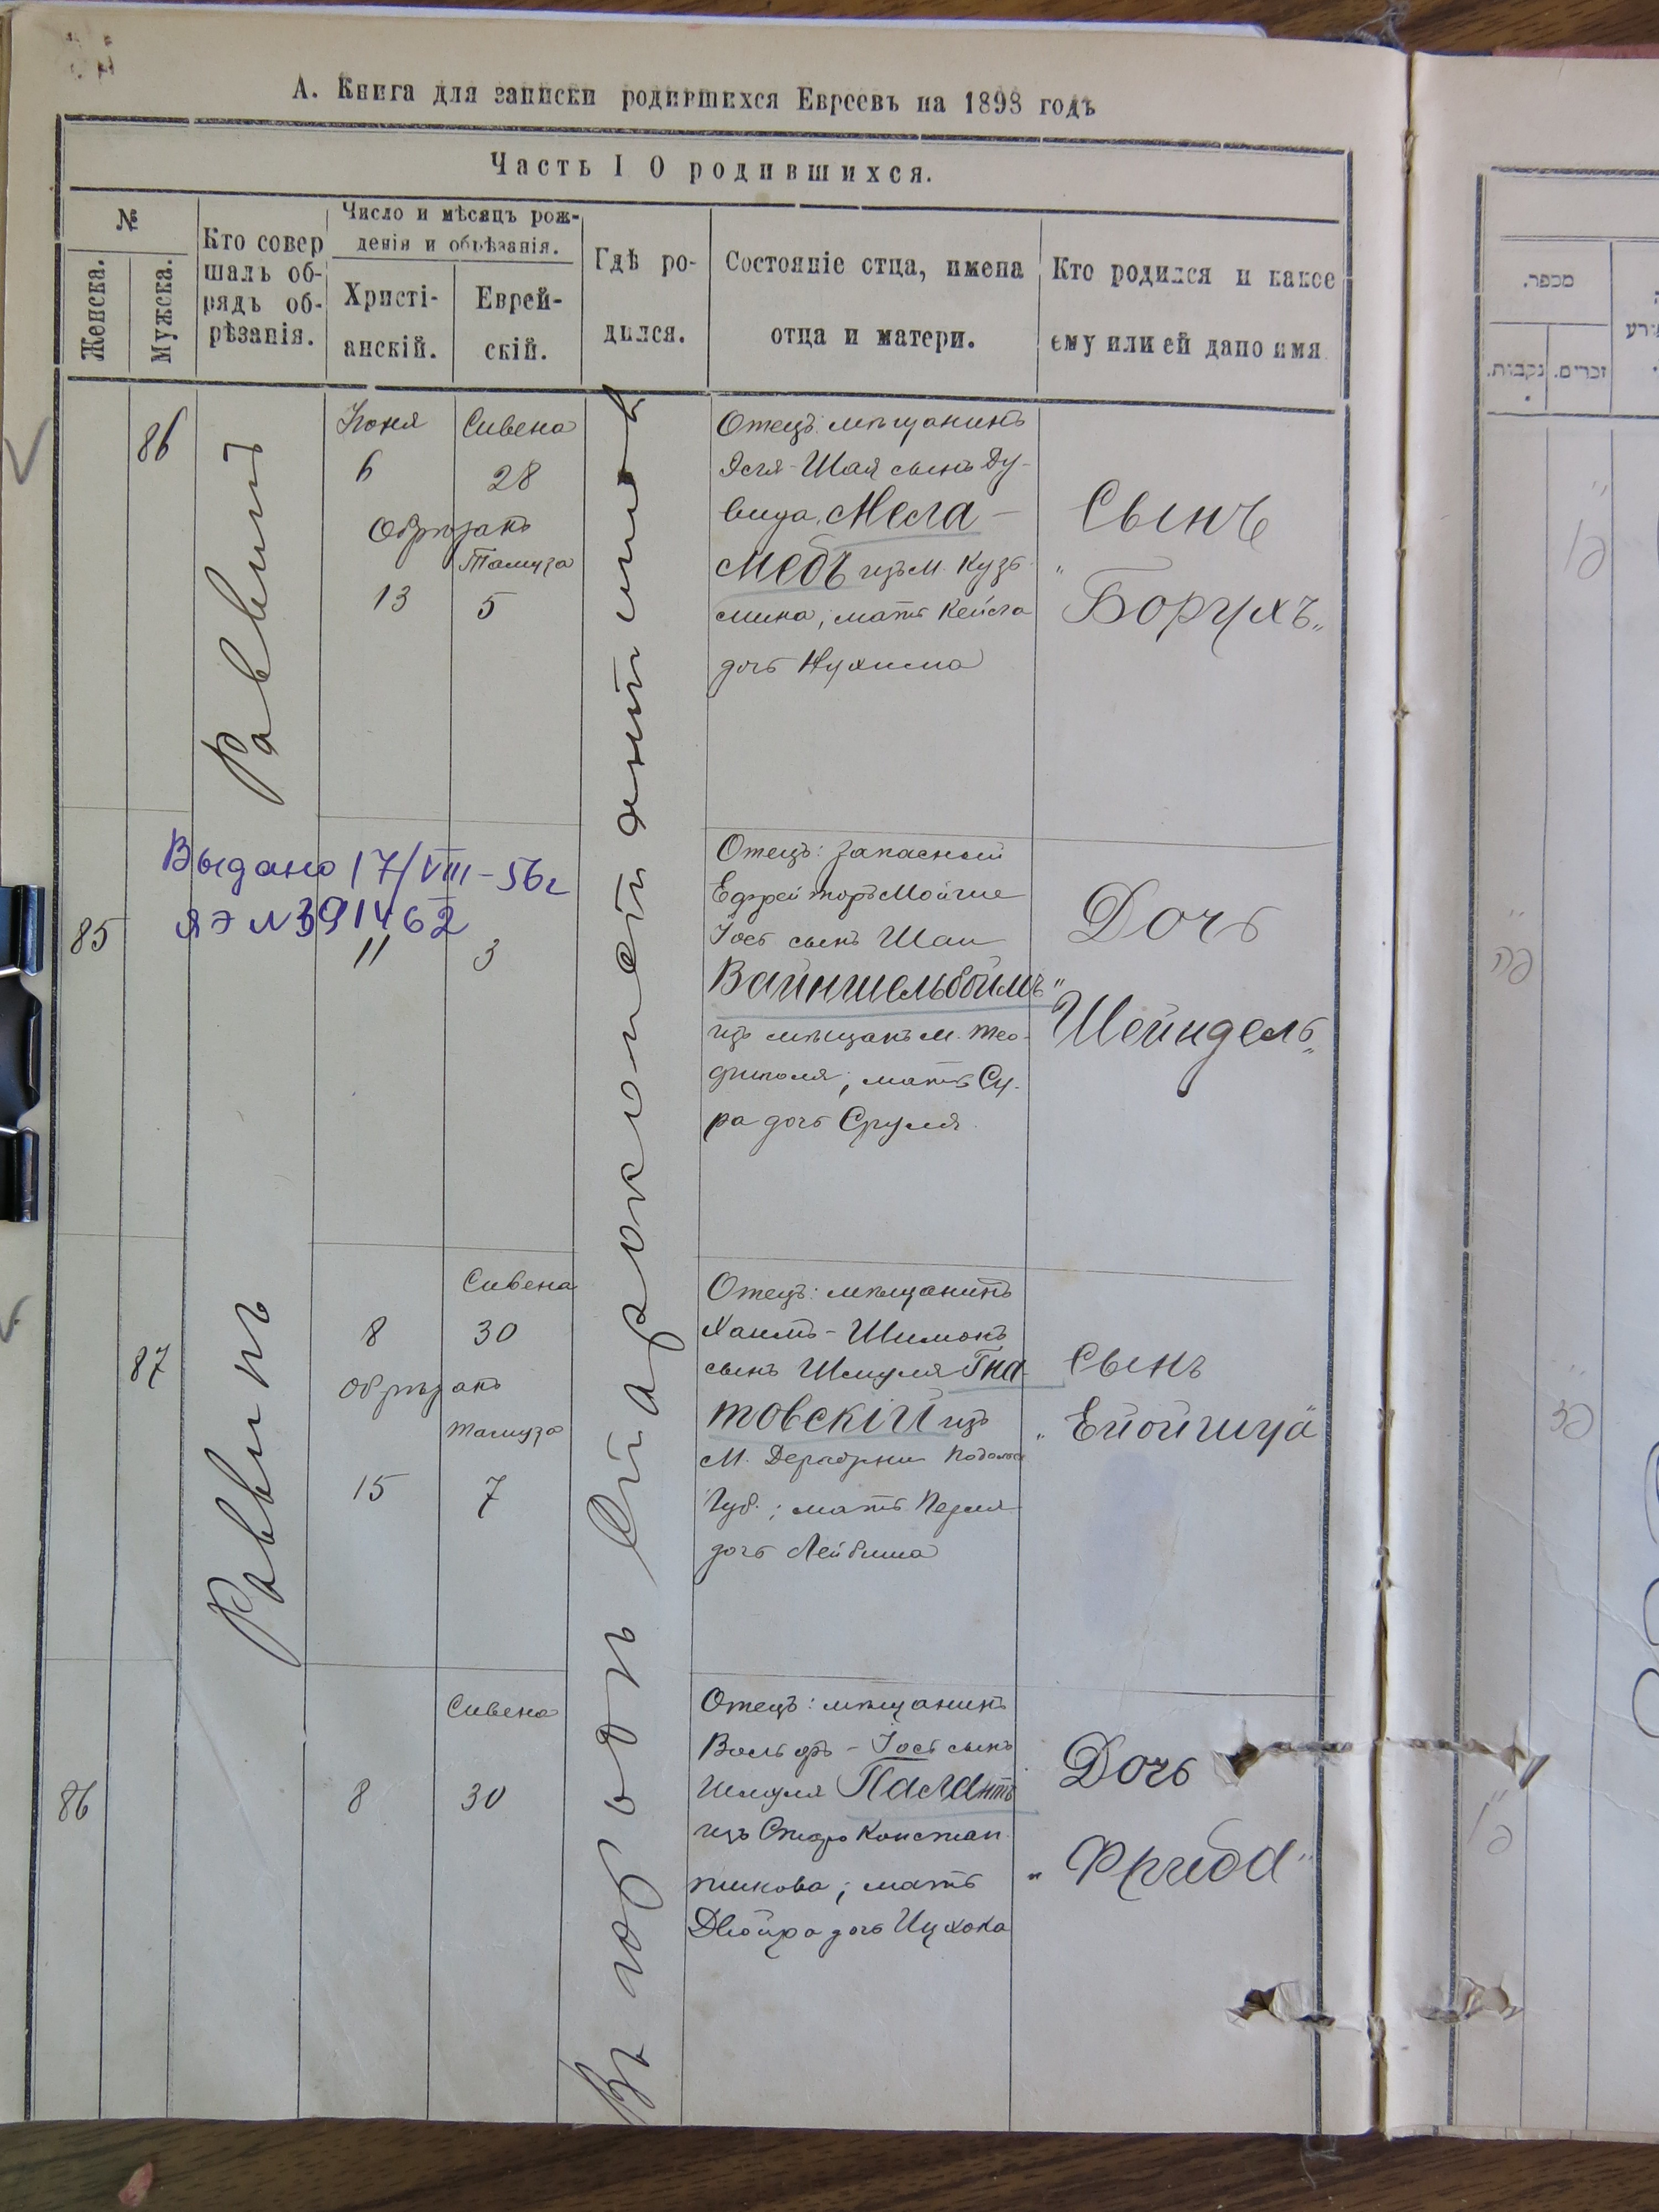 А. Книга для записки родившихся Евреевъ на 1898 годъ
Часть I О родившихся.
№
Женска.
Мужска.
Кто совер
шалъ об-
рядъ об-
рѣзанія.
Число и мѣсяцъ рож-
денія и обрѣзанія.
Христі-
анскій.
Еврей-
скій.
Гдѣ ро-
дился.
Состояніе отца, имена
отца и матери.
Кто родился и какое
ему или ей дано имя
86
Раввинъ
Іюня
6
Обрѣзанъ
13
Сивена
28
Тамуза
5
Въ Новомъ Староконстантиновѣ
Отецъ: мѣщанинъ
Шая сынъ Ду-
вида, Мела-
медъ изъ М. Кузь-
мина, мать Кейла
дочь Нухима
Сынъ
"Борухъ"
Выдано 17/VIII-56г
ЯЭ №391462
85
11
3
Отецъ: запасный
Ефрейторъ Мойше
Іось сынъ Шаи
Вайншельбоймъ
изъ мѣщанъ М. Тео-
фиполя; мать Су-
ра дочь Сруля
Дочь
"Шейндель"
87
Раввинъ
8
Обрѣзанъ
15
Сивена
30
Тамуза
7
Отецъ: мѣщанинъ
Хаимъ-Шимонъ
сынъ Шмуля Гна-
товскій изъ
М. Деражни Подольс
Губ.; мать Перля
дочь Лейбиша
Сынъ
"Ейойшуа"
86
8
Сивена
30
Отецъ: мѣщанинъ
Вольфъ-Іось сынъ
Шмуля Палантъ
изъ Старо Констан
тинова; мать
Двойра дочь Ицхока
Дочь
"Фрида"
מספר.
נקבות.
זכרים.